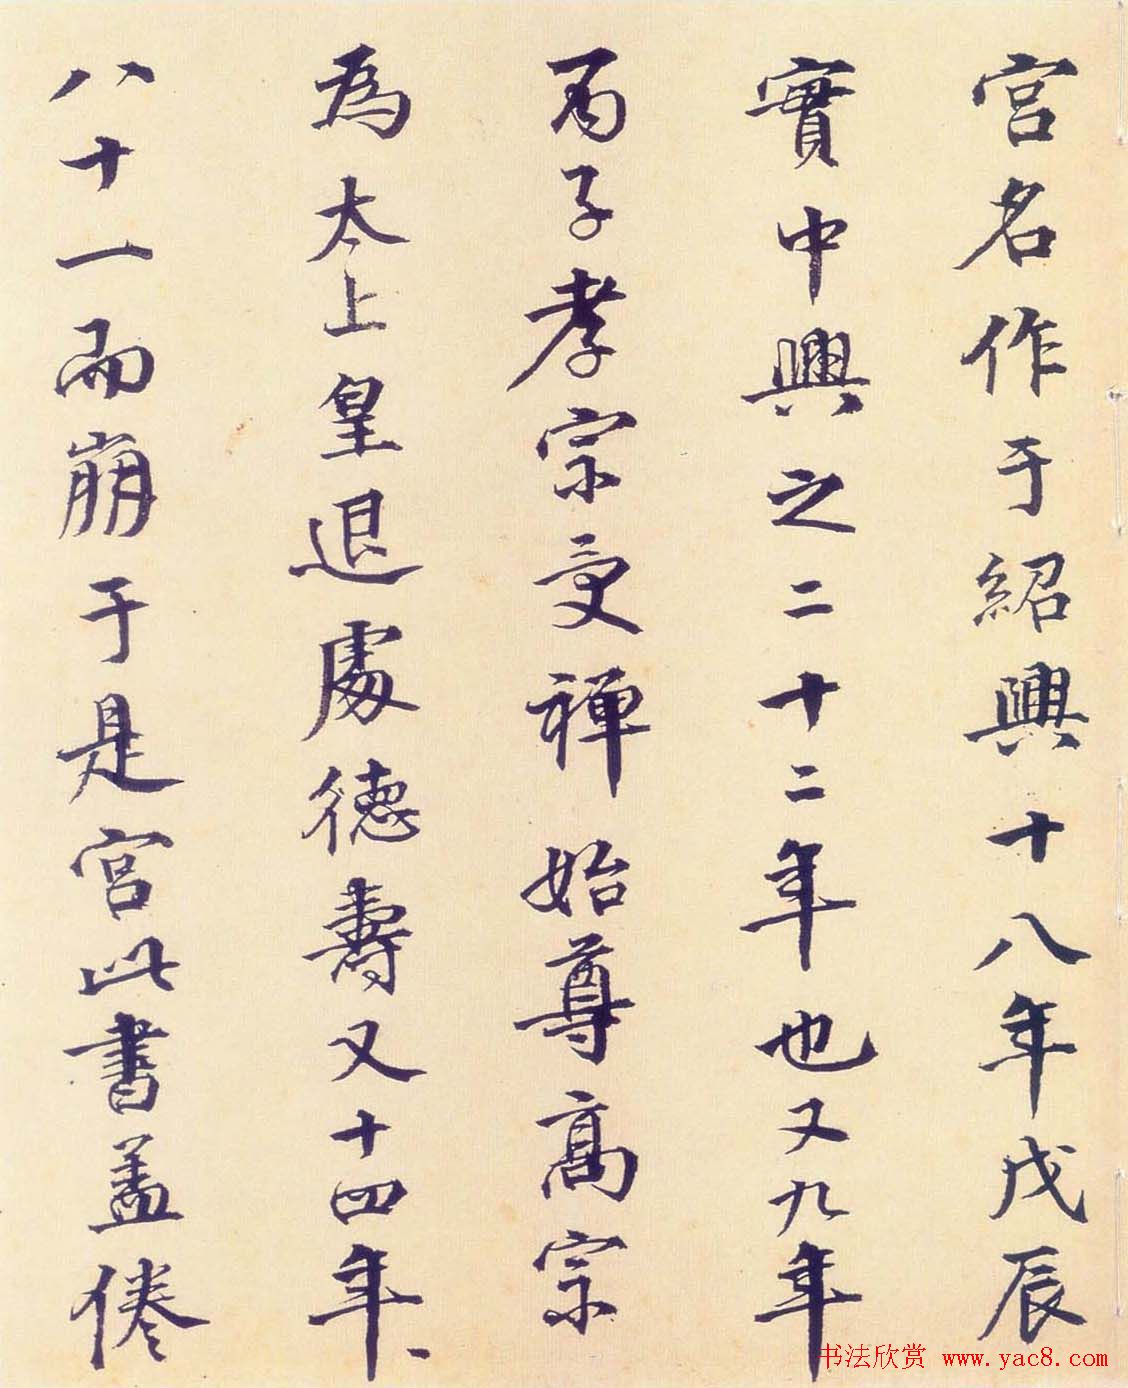 宮名作于紹興十八年戊辰
實中興之二十二年也又九年
丙子孝宗受禪始尊高宗
為太上皇退處德壽又十四年、
八十一而崩于是宮此書蓋倦
书法欣赏 www.yac8.com